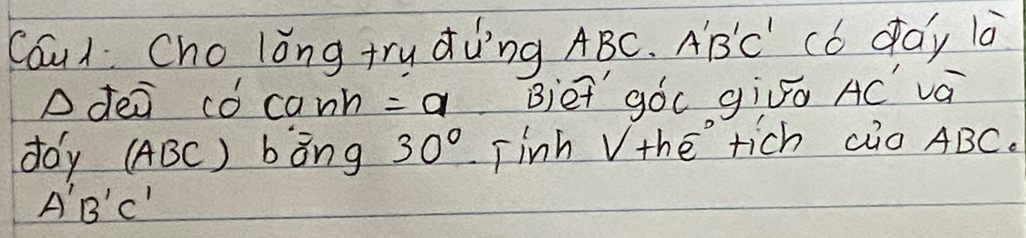 Câu 1: Cho lăng trụ đứng ABC. A'B'C' có đáy là
Δ đều có cạnh = a Biết góc giữa AC' và
đáy (ABC) bằng 30°. Tính V thể tích của ABC.
A'B'C'